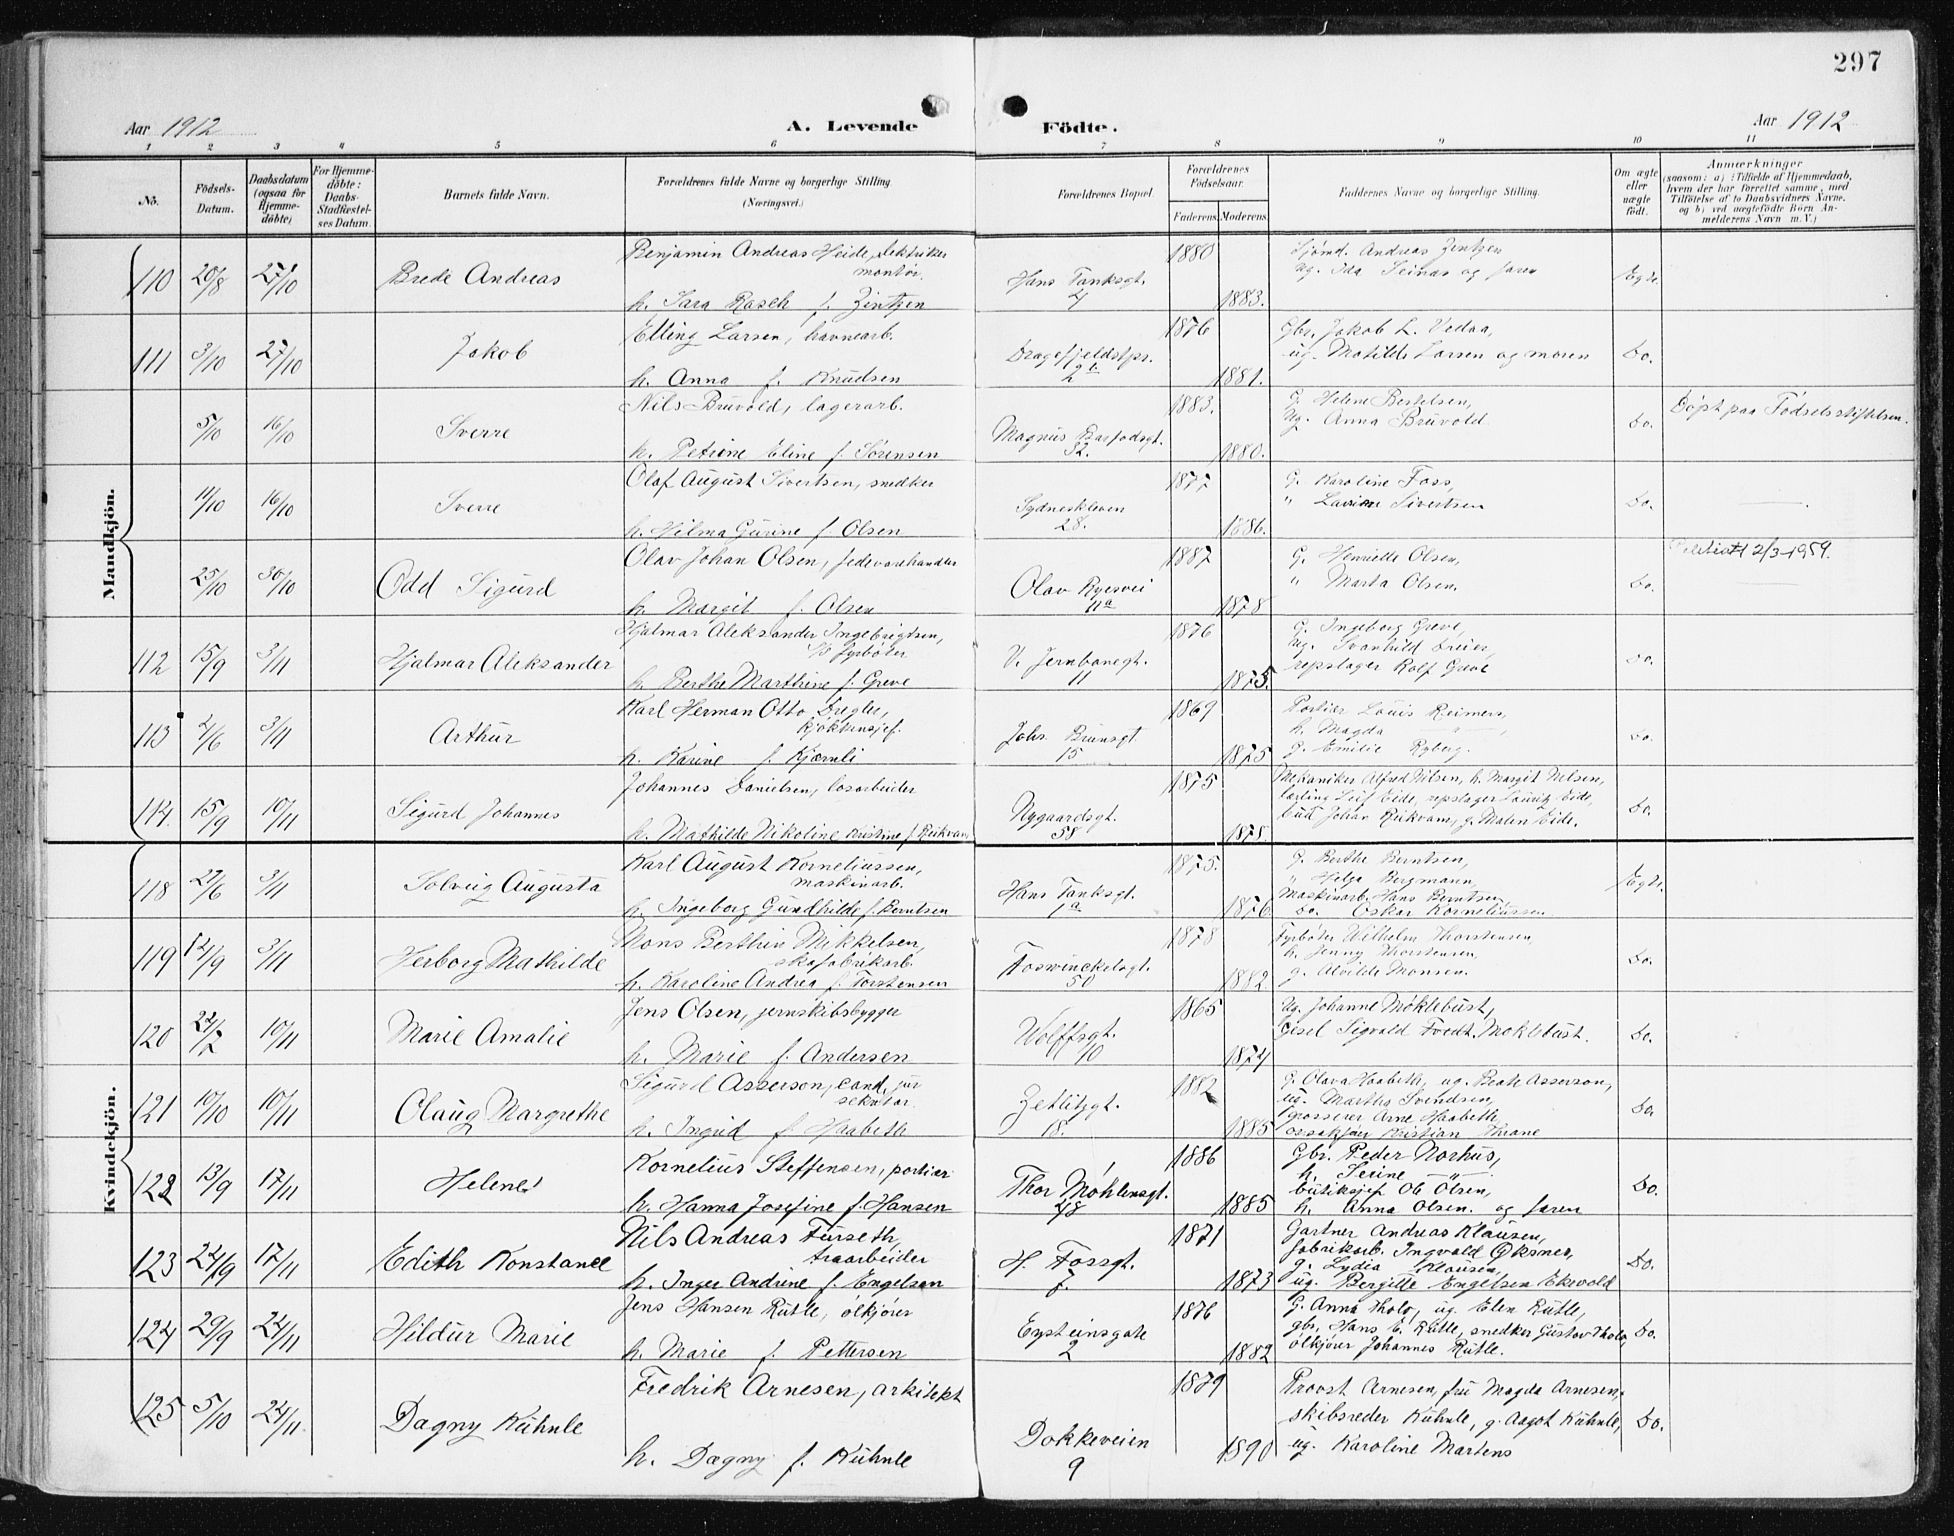 297
Aar 1912
A. Levende
Födte.
Aar 1912
1 2 3 4 5 6 7 8 9 10 11
No.
Födsels-Datum.
Daabsdatum (ogsaa for Hjemme-döbte)
For Hjemme-döbte: Daabs-Stadfæstel-ses Datum.
Barnets fulde Navn.
Forældrenes fulde Navne og borgerlige Stilling. (Næringsvei.)
Forældrenes Bopæl.
Forældrenes Födselsaar.
Faderens. Moderens.
Faddernes Navne og borgerlige Stilling.
Om ægte eller uægte födt.
Anmærkninger
(saasom: a) i Tilfælde af Hjemmedaab, hvem der har forrettet samme, med Tilföielse af to Daabsvidners Navne, og b) ved uægtefödte Börn Anmelderens Navn m. V.)
Mandkjön.
110 20/8 27/10 Brede Andreas
Benjamin Andreas Heide, elektriker montør
h. Sara Rasch f. Zintzen
Hans Tanksgt. 4 1880 1883.
Sjömd. Andreas Zintzen
ug. Ida Seinas og faren
Egte.
111 3/10 27/10 Jakob
Elling Larsen, havnearb.
h. Anna f. Knudsen
Dragefjeldstpr. 1876 1881.
Gbr. Jakob L. Vedaa,
ug. Matilde Larsen og moren
Do.
5/10 16/10 Sverre
Nils Bruvold, lagerarb.
h. Petrine Eline f. Sørensen
Magnus Barfodsgt. 32. 1883. 1880.
G. Helene Bertelsen,
Ug. Anna Bruvold
Do.
Döpt paa Födselsstiftelsen.
11/10 16/10 Sverre
Olaf August Sivertsen, snedker
h. Hilma Gurine f. Olsen
Sydneskleven 28. 1877 1886.
G. Karoline Foss,
" Lavine Sivertsen
Do. —
25/10 30/10 Odd Sigurd
Olav Johan Olsen, fedevarehandler
h. Margit f. Olsen
Olav Ryesvei 11a 1887 1878
G. Henriette Olsen,
" Marta Olsen.
Do.
2/3-1959.
112 15/9 3/11 Hjalmar Aleksander
Hjalmar Aleksander Ingebrigtsen,
fyrbøter
h. Berthe Marthine f. Greve
V. Jernbanegt. 11 1876 1875.
G. Ingeborg Greve,
Ug. Svanhild Breier,
repslager Rolf Greve
Do.
113 2/6 3/11 Arthur
Karl Herman Otto Dregler,
kjøkkensjef.
h. Karine f. Kjærnli
Johs. Brunsgt. 15 1869 1875
Portier Louis Reimers,
h. Magda — " —,
g. Emilie Ryberg.
Do.
114. 15/9 10/11 Sigurd Johannes
Johannes Danielsen, løsarbeider
h. Mathilde Nikoline Kristine f. Reikvam
Nygaardsgt. 58 1875 1878
Mekaniker Alfred Nilsen, h. Margit Nilsen,
lærling Leif Eide, repslager Lauritz Eide,
bud Johan Reikvam, g. Malen Eide.
Do.
Kvindekjön.
118 27/6 3/11 Solveig Augusta
Karl August Korneliussen,
maskinarb.
h. Ingeborg Gundhilde f. Berntsen
Hans Tanksgt. 1a 1875. 1876
G. Berthe Berntsen,
" Helga Bergmann,
Maskinarb. Hans Berntsen,
Do. Oskar Korneliussen
Egte.
119 12/9 3/11 Herborg Mathilde
Mons Berthin Mikkelsen,
skofabrikarb.
h. Karoline Andrea f. Torstensen
Foswinckelsgt. 50 1878 1882
Fyrbøter Wilhelm Thorstensen,
h. Jenny Thorstensen,
g. Alvilde Monsen.
Do.
120 22/7 10/11 Marie Amalie
Jens Olsen, jernskibsbygger
h. Marie f. Andersen
Wolffsgt. 10 1865 1874
Ug. Johanne Møklebust,
Gisel Sigvald Fredt. Møklebust.
Do.
121 10/10 10/11 Olaug Margrethe
Sigurd Asserson, cand. jur
sekretær
h. Ingrid f. Haabeth
Zetlitzgt. 18. 1882 1885
G. Olava Haabeth, ug. Beate Asserson,
ug. Marthe Svendsen,
grosserer Arne Haabeth,
Kristian Thrane
Do.
122 13/9 17/11 Helene
Kornelius Steffensen, portier
h. Hanna Josefine f. Hansen
Thor Møhlensgt. 48 1886 1885
Gbr. Peder Norhus,
h. Seine — " —
butiksjef Ob Olsen,
h. Anna Olsen. og faren
Do.
123 22/9 17/11 Edith Konstance
Nils Andreas Furseth,
traarbeider
h. Inger Andrine f. Engelsen
H. Fossgt. 7. 1871 1873
Gartner Andreas Klausen,
fabrikarb. Ingvald Øksnes,
g. Lydia Klausen,
ug. Bergitte Engelsen Ekevold
Do.
124 29/9 24/11 Hildur Marie
Jens Hansen Rutle, ølkjører
h. Marie f. Pettersen
Eysteinsgate 2 1876 1882
G. Anna Tholo, ug. Elen Rutle,
gbr. Hans E. Rutle, snedker Gustav Tholo,
ølkjører Johannes Rutle.
Do.
125 5/10 24/11 Dagny Kühnle
Fredrik Arnesen, arkitekt
h. Dagny f. Kühnle
Dokkeveien 9 1879 1890
Provst Arnesen, fru Magda Arnesen,
skibsreder Kühnle, g. Aagot Kühnle,
ug. Karoline Martens
Do.